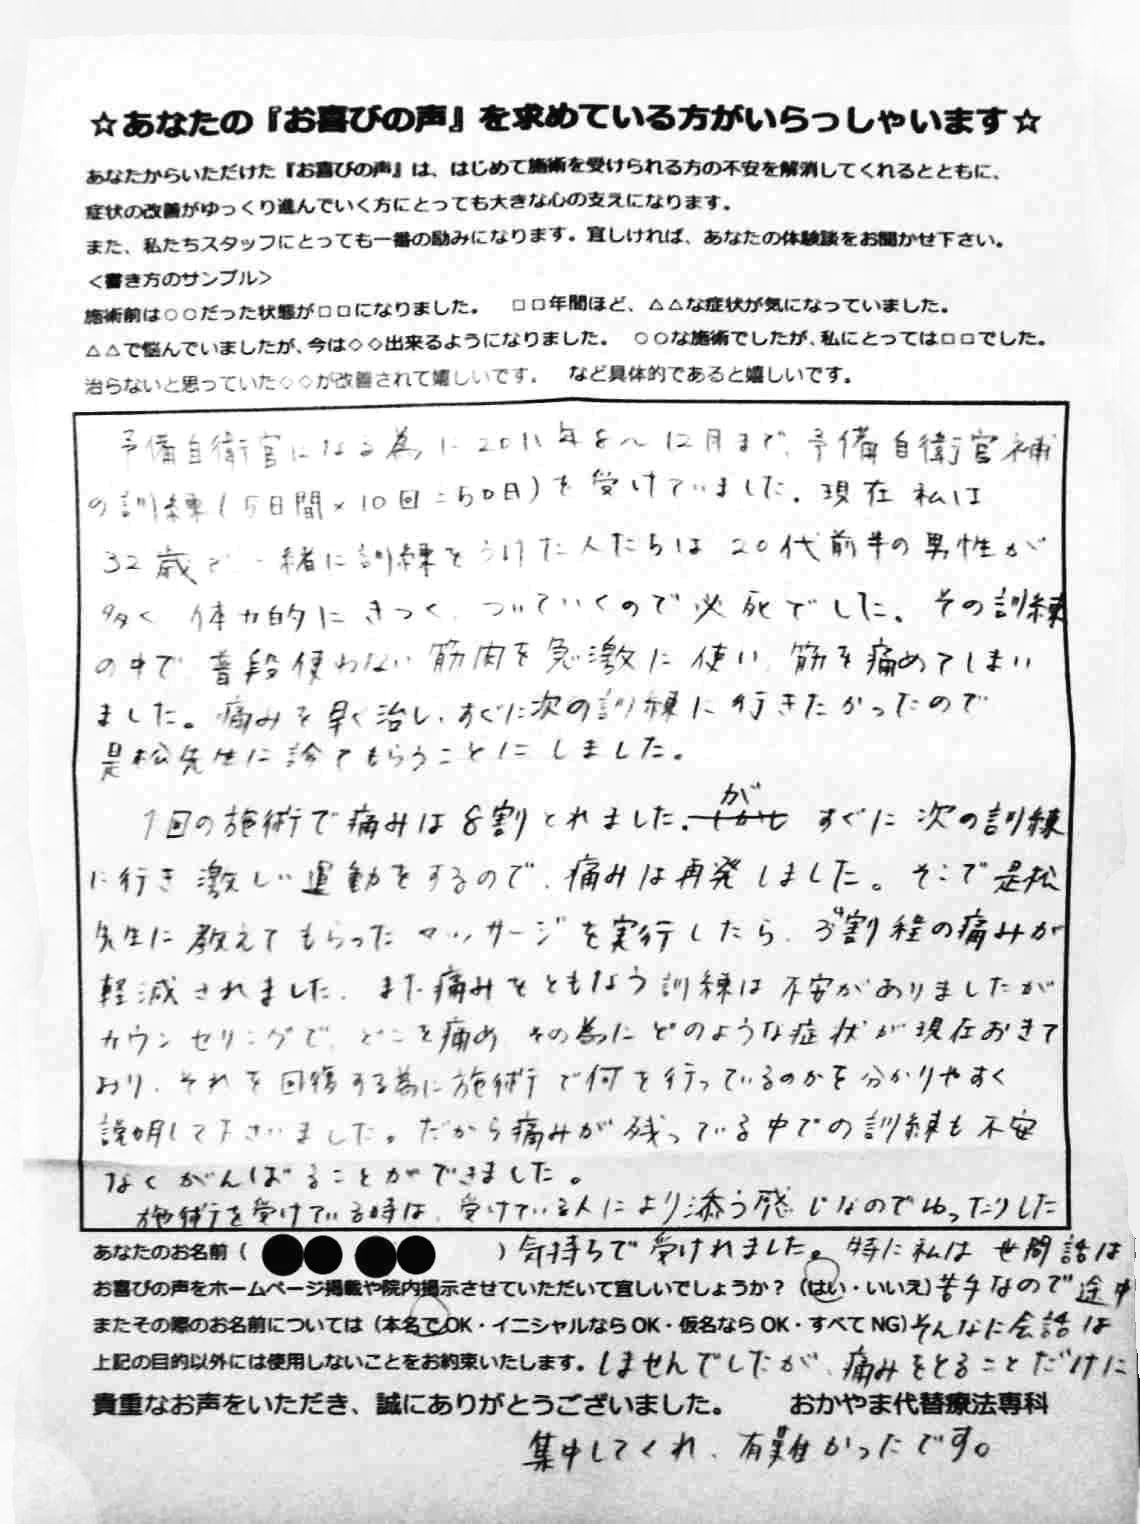 ☆あなたの『お喜びの声』を求めている方がいらっしゃいます☆
あなたからいただけた『お喜びの声』は、はじめて施術を受けられる方の不安を解消してくれるとともに、
症状の改善がゆっくり進んでいく方にとっても大きな心の支えになります。
また、私たちスタッフにとっても一番の励みになります。宜しければ、あなたの体験談をお聞かせ下さい。
＜書き方のサンプル＞
施術前は○○だった状態が□□になりました。　□□年間ほど、△△な症状が気になっていました。
△△で悩んでいましたが、今は◇◇出来るようになりました。　○○な施術でしたが、私にとっては□□でした。
治らないと思っていた◇◇が改善されて嬉しいです。　など具体的であると嬉しいです。
予備自衛官になる為に2011年8〜12月まで、予備自衛官補
の訓練(5日間×10回=50日)を受けていました。現在私は
32歳で一緒に訓練をうけた人たちは20代前半の男性が
多く体力的にきつく、ついていくので必死でした。その訓練
の中で普段使わない筋肉を急激に使い、筋を痛めてしまい
ました。痛みを早く治し、すぐに次の訓練に行きたかったので
是松先生に診てもらうことにしました。
1回の施術で痛みは8割とれました。がすぐに次の訓練
に行き激しい運動をするので、痛みは再発しました。そこで是松
先生に教えてもらったマッサージを実行したら、割程の痛みが
軽減されました。また痛みをともなう訓練は不安がありましたが
カウンセリングで、どこを痛め、その為にどのような症状が現在おきて
おり、それを回復する為に施術で何を行っているのかを分かりやすく
説明して下さいました。だから痛みが残っている中での訓練も不安
なくがんばることができました。
施術を受けている時は、受けている人により添う感じなのでゆったりした
あなたのお名前（　　　　）気持ちで受けれました。特に私は世間話は
お喜びの声をホームページ掲載や院内掲示させていただいて宜しいでしょうか？（はい・いいえ）苦手なので途中
またその際のお名前については（本名でOK・イニシャルならOK・仮名ならOK・すべてNG）そんなに会話は
上記の目的以外には使用しないことをお約束いたします。しませんでしたが、痛みをとることだけに
貴重なお声をいただき、誠にありがとうございました。　　おかやま代替療法専科
集中してくれ、有難かったです。